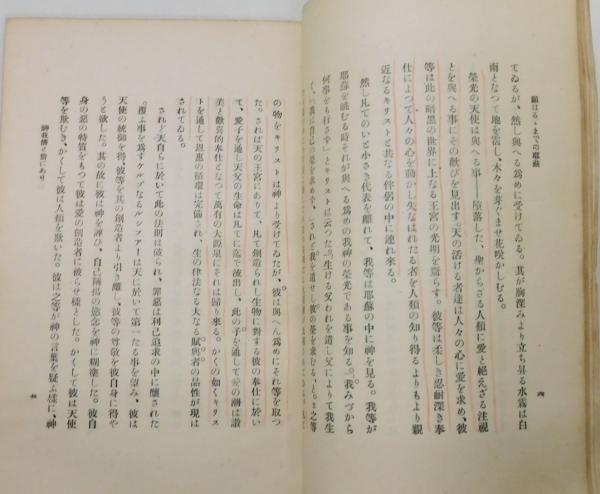 顯はるゝまでの耶蘇
四
てゐるが、然し與へる爲めに受けてゐる。其が胸深みより立ち昇る水霧は白
雨となつて地を霑し、木々を芽ぐませ花咲かしむる。
榮光の天使は與へる事――墮落した、聖からざる人類に愛と絕えざる注視
とを與へる事にその歡びを見出す。天の活ける者達は人々の心に愛を求め、彼
等は此の暗黑の世界に上なる王宮の光明を齎らす。彼等は柔しき忍耐深き奉
仕によつて、人々の心を動かし失なはれたる者を人の知り得るよりもより親
近なるキリストと其なる伴侶の中に連れ來る。
然し凡てのいと小さき代表を離れて、我等は耶蘇の中に神を見る。我等が
耶蘇を眺むる時それが與へる爲めの我神の榮光である事を知る。『我みづから
何事をも行さず』とキリストは云つた、『生ける父われを遣し父によりて我生
『我は己の榮を求めず、』『されど我を遣せし彼の榮を求むる』と。之等
の物をキリストは神より受けてゐたが、彼は與へん爲めにそれ等を取つ
た。されば天の王宮にありて、凡て創造られし生物に對する彼の奉仕に於い
て、愛子を通し天父の生命は凡てに迄も流出し、此の子を通して愛の潮は讃
美と歡喜的奉仕となつて萬有の大源泉にそれは歸り來る。かくの如くキリス
トを通して恩惠の循環は完備され、生の律法なる大なる賦與者の品性が現は
されてゐる。
されど天自らに於いて此の法則は破られ、罪惡は利己追求の中に釀された
。覆ふ事を爲すケルブなるルシフアーは天に於いて第一たる事を望み、彼は
天使の統御を得、彼等を其の創造者より引き離し、彼等の尊敬を彼自身に得や
うと欲した。其の故に彼は神を譁ひ、自己稱揚の慾念を神に糊塗した。彼自
身の惡の特質をもつて彼は愛の創造者に彼らせ樣とした。かくして彼は天使
等を欺むき、かくして彼は人類を欺いた。彼は之等が神の言葉を疑ふ樣に、神
神我儕と偕に在り
五